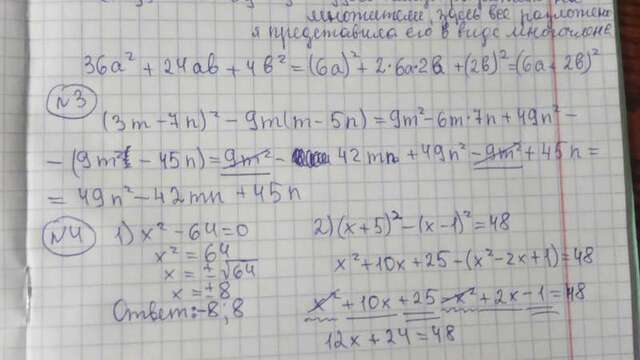 множители, здесь все разложено
я представила его в виде многочлена
36a² + 24ab + 4b² = (6a)² + 2·6a·2b + (2b)² = (6a + 2b)²
№3
(3m - 7n)² - 9m(m - 5n) = 9m² - 6m·7n + 49n² -
- (9m² - 45n) = 9m² - 42mn + 49n² - 9m² + 45n =
= 49n² - 42mn + 45n
№4 1) x² - 64 = 0 2) (x + 5)² - (x - 1)² = 48
x² = 64
x = ±√64 x² + 10x + 25 - (x² - 2x + 1) = 48
x = ±8
Ответ: -8, 8 x² + 10x + 25 - x² + 2x - 1 = 48
12x + 24 = 48